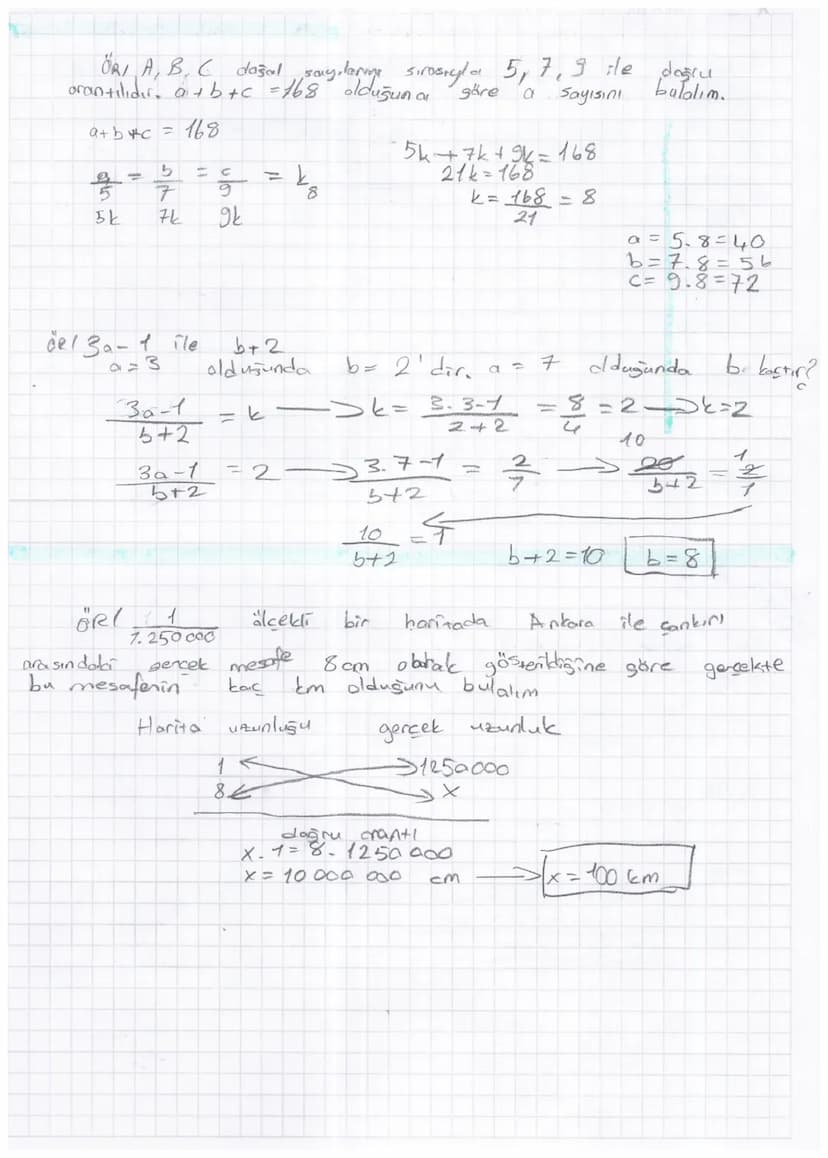 ÖR/ A, B, C doğal sayılarını sırasıyla 5, 7, 9 ile doğru
orantılıdır. a+b+c =168 olduğuna göre a sayısını bulalım.
a+b+c = 168
5k+7k+9k=168
21k=168
a/5 = b/7 = c/9 = k 8
5k 7k 9k
k= 168/21 = 8
a = 5.8=40
b=7.8=56
c= 9.8=72
Ör/ 3a-1 ile b+2
a=3 olduğunda b= 2'dir. a = 7 olduğunda b kaçtır?
3a-1/b+2 = k → k= 3.3-1/2+2 = 8/4 = 2 → k=2
3a-1/b+2 = 2 → 3.7-1/b+2 = 2/7 → 10 20/b+2 = 1 2/1
10/b+2 = 1 b+2=10 b=8
ÖR/ 1/1.250000 ölçekli bir haritada Ankara ile Çankırı
arasındaki gerçek mesafe 8cm olarak gösterildiğine göre gerçekte
bu mesafenin kaç km olduğunu bulalım
Harita uzunluğu gerçek uzunluk
1 1250000
8 x
doğru orantı
x.1=8.1250000
x=10 000 000 cm → x=100 km